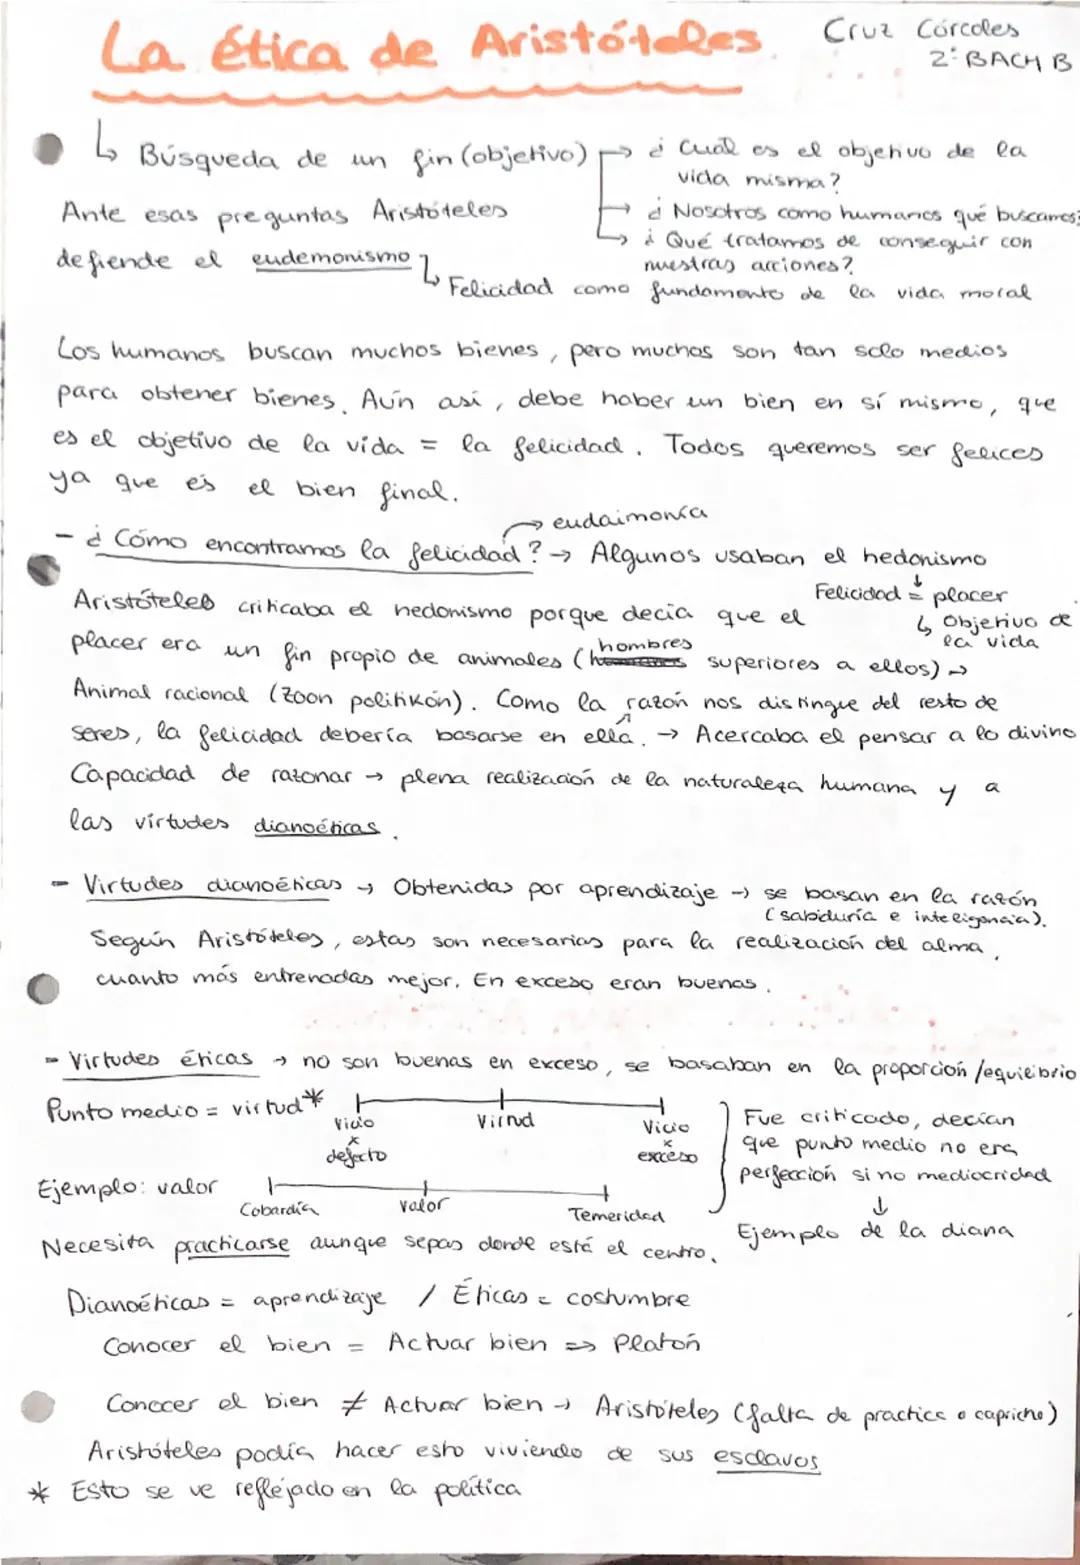 La ética de Aristóteles
Cruz Córcoles
2º BACH B
↳ Búsqueda de un fin (objetivo)
→ ¿Cuál es el objetivo de la
vida misma?
→ ¿Nosotros como humanos qué buscamos?
→ ¿Qué tratamos de conseguir con
nuestras acciones?
Ante esas preguntas Aristóteles
defiende el eudemonismo
↳ Felicidad como fundamento de la vida moral
Los humanos buscan muchos bienes, pero muchos son tan solo medios
para obtener bienes. Aún así, debe haber un bien en sí mismo, que
es el objetivo de la vida = la felicidad. Todos queremos ser felices
ya que es el bien final.
→ eudaimonía
- ¿Cómo encontramos la felicidad? → Algunos usaban el hedonismo
↓
Felicidad = placer
↳ Objetivo de
la vida
Aristóteles criticaba el hedonismo porque decía que el
placer era un fin propio de animales (hombres superiores a ellos) →
Animal racional (Zoon politikón). Como la razón nos distingue del resto de
seres, la felicidad debería basarse en ella. → Acercaba el pensar a lo divino
Capacidad de razonar → plena realización de la naturaleza humana y a
las virtudes dianoéticas.
- Virtudes dianoéticas → Obtenidas por aprendizaje → se basan en la razón
(sabiduría e inteligencia).
Según Aristóteles, estas son necesarias para la realización del alma,
cuanto más entrenadas mejor. En exceso eran buenas.
- Virtudes éticas → no son buenas en exceso, se basaban en la proporción/equilibrio
Punto medio = virtud*
Vicio
x
defecto
Virtud
Vicio
x
exceso
Ejemplo: valor
Cobardía
Valor
Temeridad
Fue criticado, decían
que punto medio no era
perfección si no mediocridad
↓
Ejemplo de la diana
Necesita practicarse aunque sepas donde está el centro.
Dianoéticas = aprendizaje / Éticas = costumbre
Conocer el bien = Actuar bien => Platón
Conocer el bien ≠ Actuar bien → Aristóteles (falta de practica o capricho)
Aristóteles podía hacer esto viviendo de sus esclavos
* Esto se ve reflejado en la política